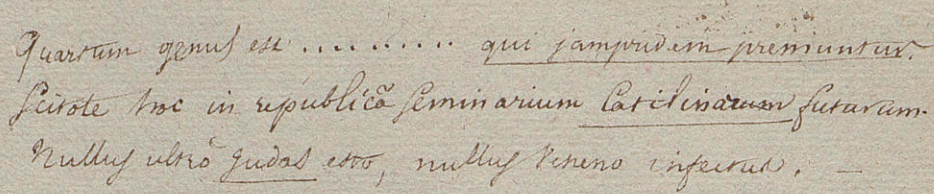 Quartum genus est .......... qui jampridem premuntur.
Scitote hoc in republicâ seminarium Catilinarum futurum.
Nullus ultrò Judas esto, nullus veneno infectus. —